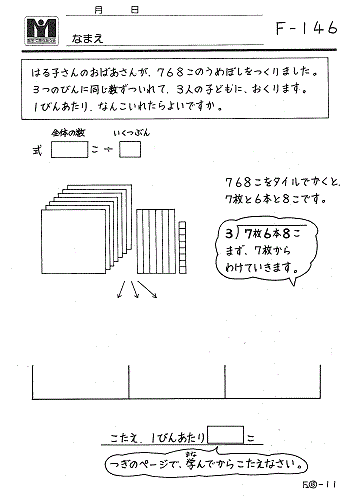 月 日
F-146
なまえ
はる子さんのおばあさんが、768このうめぼしをつくりました。
3つのびんに同じ数ずついれて、3人の子どもに、おくります。
1びんあたり、なんこいれたらよいですか。
全体の数 いくつぶん
式 こ÷
768こをタイルでかくと、
7枚と6本と8こです。
3)7枚6本8こ
まず、7枚から
わけていきます。
こたえ、1びんあたり こ
まな
つぎのページで、学んでからこたえなさい。